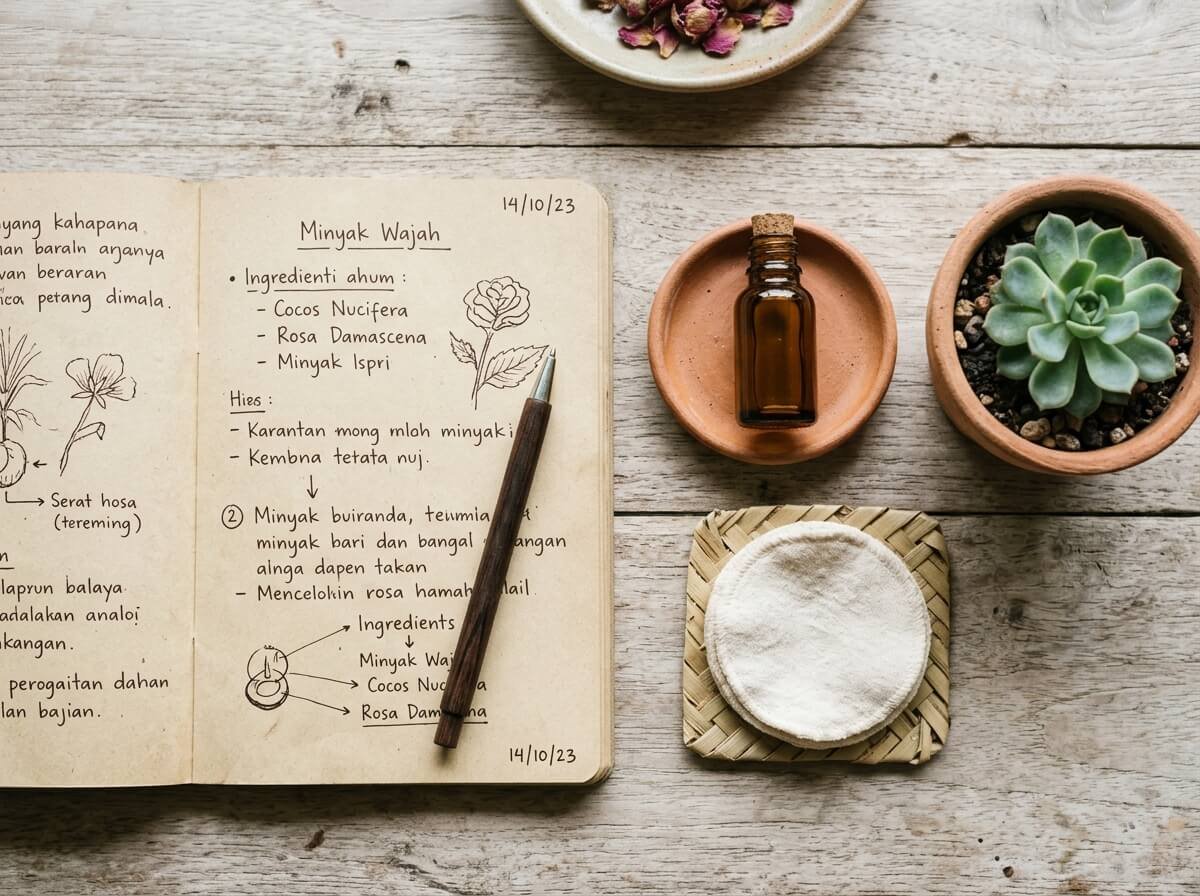 yang kahapana
nan baraln anganya
wan beraran
petang dimala.
Serat hosa
(tereming)
laprun balaya
adalakan analoi
kangan.
perogaitan dahan
lan bajian.
14/10/23
Minyak Wajah
• Ingredienti ahum :
– Cocos Nucifera
– Rosa Damascena
– Minyak Ispri
Hies :
– Karantan mong mloh minyaki
– Kembna tetata nuj.
② Minyak buiranda,
minyak bari dan bangal
alnga dapen takan
– Mencelokin rosa
Ingredients
Minyak
Cocos
Rosa
14/10/23